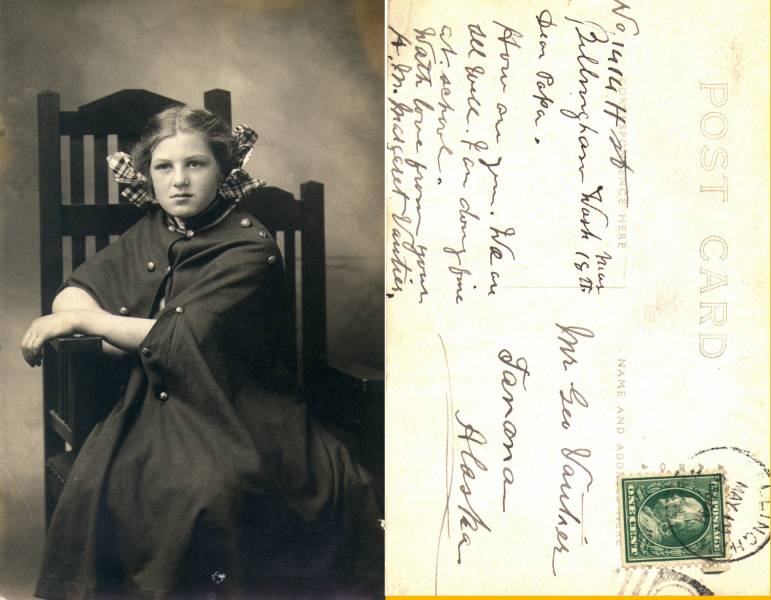 POST CARD
CORRESPONDENCE HERE
NAME AND ADDRESS
No. 1414 H St
Bellingham Wash Mar 18th
Dear Papa.
How are you. We are
all well. I am doing fine
at school.
With love from your
A. M. Margaret Vautier.
Mr Geo Vautier
Tanana
Alaska
U.S. POSTAGE
ONE CENT
MAR